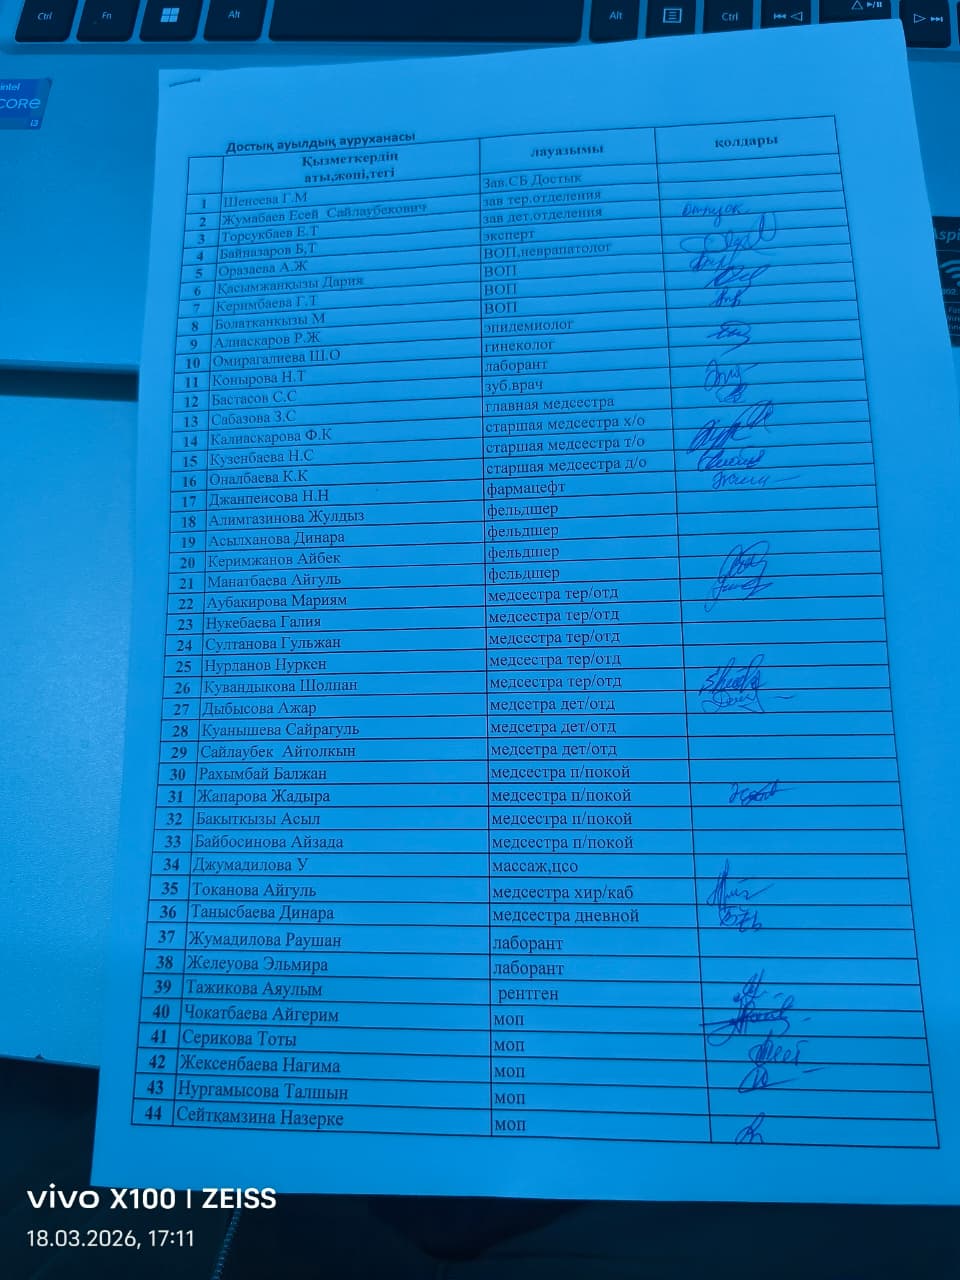 Ctrl Fn Alt Alt Ctrl
intel
CORE
i3
Достық ауылдық ауруханасы
Қызметкердің аты,жөні,тегі лауазымы қолдары
1 Шенеева Г.М Зав.СБ Достык
2 Жумабаев Есей Сайлаубекович зав тер.отделения
3 Торсукбаев Е.Т зав дет.отделения отпуск
4 Байназаров Б,Т эксперт
5 Оразаева А.Ж ВОП,неврапатолог
6 Қасымжанқызы Дария ВОП
7 Керимбаева Г.Т ВОП
8 Болатканкызы М ВОП
9 Алиаскаров Р.Ж эпидемиолог
10 Омирагалиева Ш.О гинеколог
11 Конырова Н.Т лаборант
12 Бастасов С.С зуб.врач
13 Сабазова З.С главная медсестра
14 Калиаскарова Ф.К старшая медсестра х/о
15 Кузенбаева Н.С старшая медсестра т/о
16 Оналбаева К.К старшая медсестра д/о
17 Джанпеисова Н.Н фармацефт
18 Алимгазинова Жулдыз фельдшер
19 Асылханова Динара фельдшер
20 Керимжанов Айбек фельдшер
21 Манатбаева Айгуль фельдшер
22 Аубакирова Мариям медсестра тер/отд
23 Нукебаева Галия медсестра тер/отд
24 Султанова Гульжан медсестра тер/отд
25 Нурланов Нуркен медсестра тер/отд
26 Кувандыкова Шолпан медсестра тер/отд
27 Дыбысова Ажар медсестра дет/отд
28 Куанышева Сайрагуль медсестра дет/отд
29 Сайлаубек Айтолкын медсестра дет/отд
30 Рахымбай Балжан медсестра п/покой
31 Жапарова Жадыра медсестра п/покой
32 Бакыткызы Асыл медсестра п/покой
33 Байбосинова Айзада медсестра п/покой
34 Джумадилова У массаж,цсо
35 Токанова Айгуль медсестра хир/каб
36 Танысбаева Динара медсестра дневной
37 Жумадилова Раушан лаборант
38 Желеуова Эльмира лаборант
39 Тажикова Аяулым рентген
40 Чокатбаева Айгерим моп
41 Серикова Тоты моп
42 Жексенбаева Нагима моп
43 Нургамысова Талшын моп
44 Сейтқамзина Назерке моп
vivo X100 | ZEISS
18.03.2026, 17:11